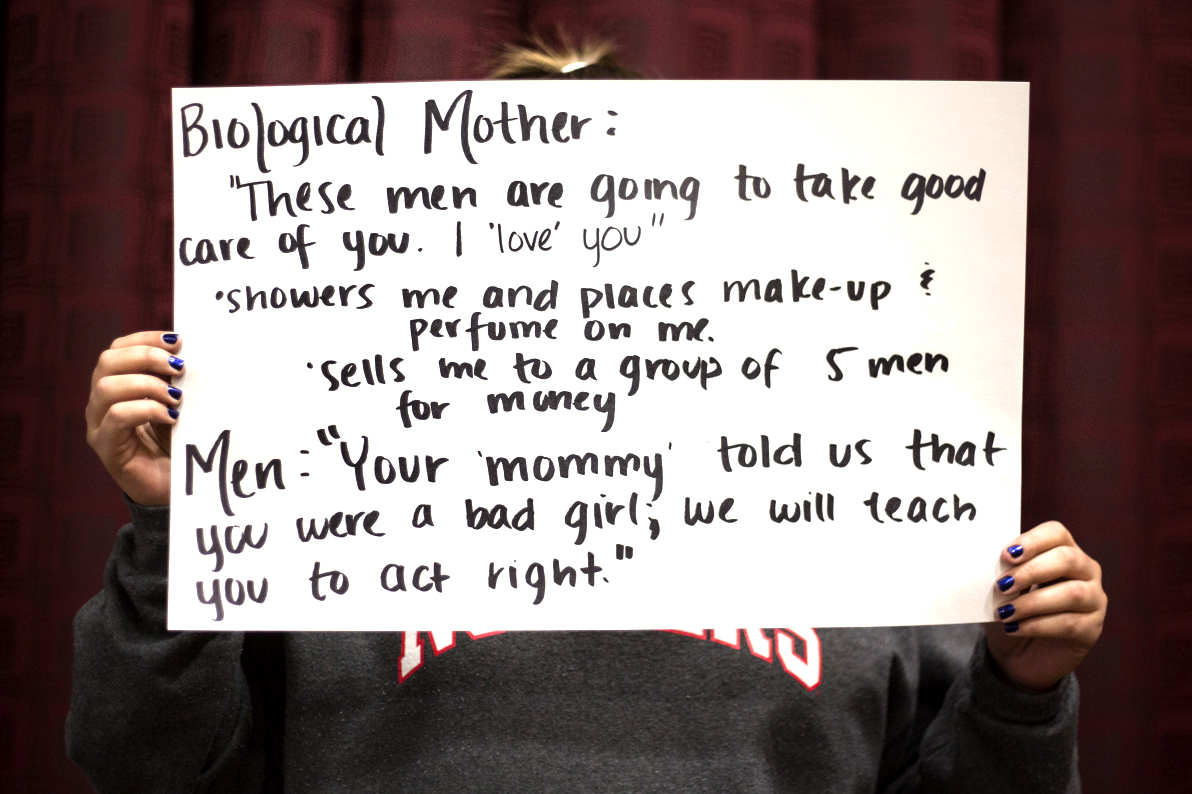 Biological Mother:
"These men are going to take good
care of you. I 'love' you"
•showers me and places make-up &
perfume on me.
•sells me to a group of 5 men
for money
Men: "Your 'mommy' told us that
you were a bad girl; we will teach
you to act right."